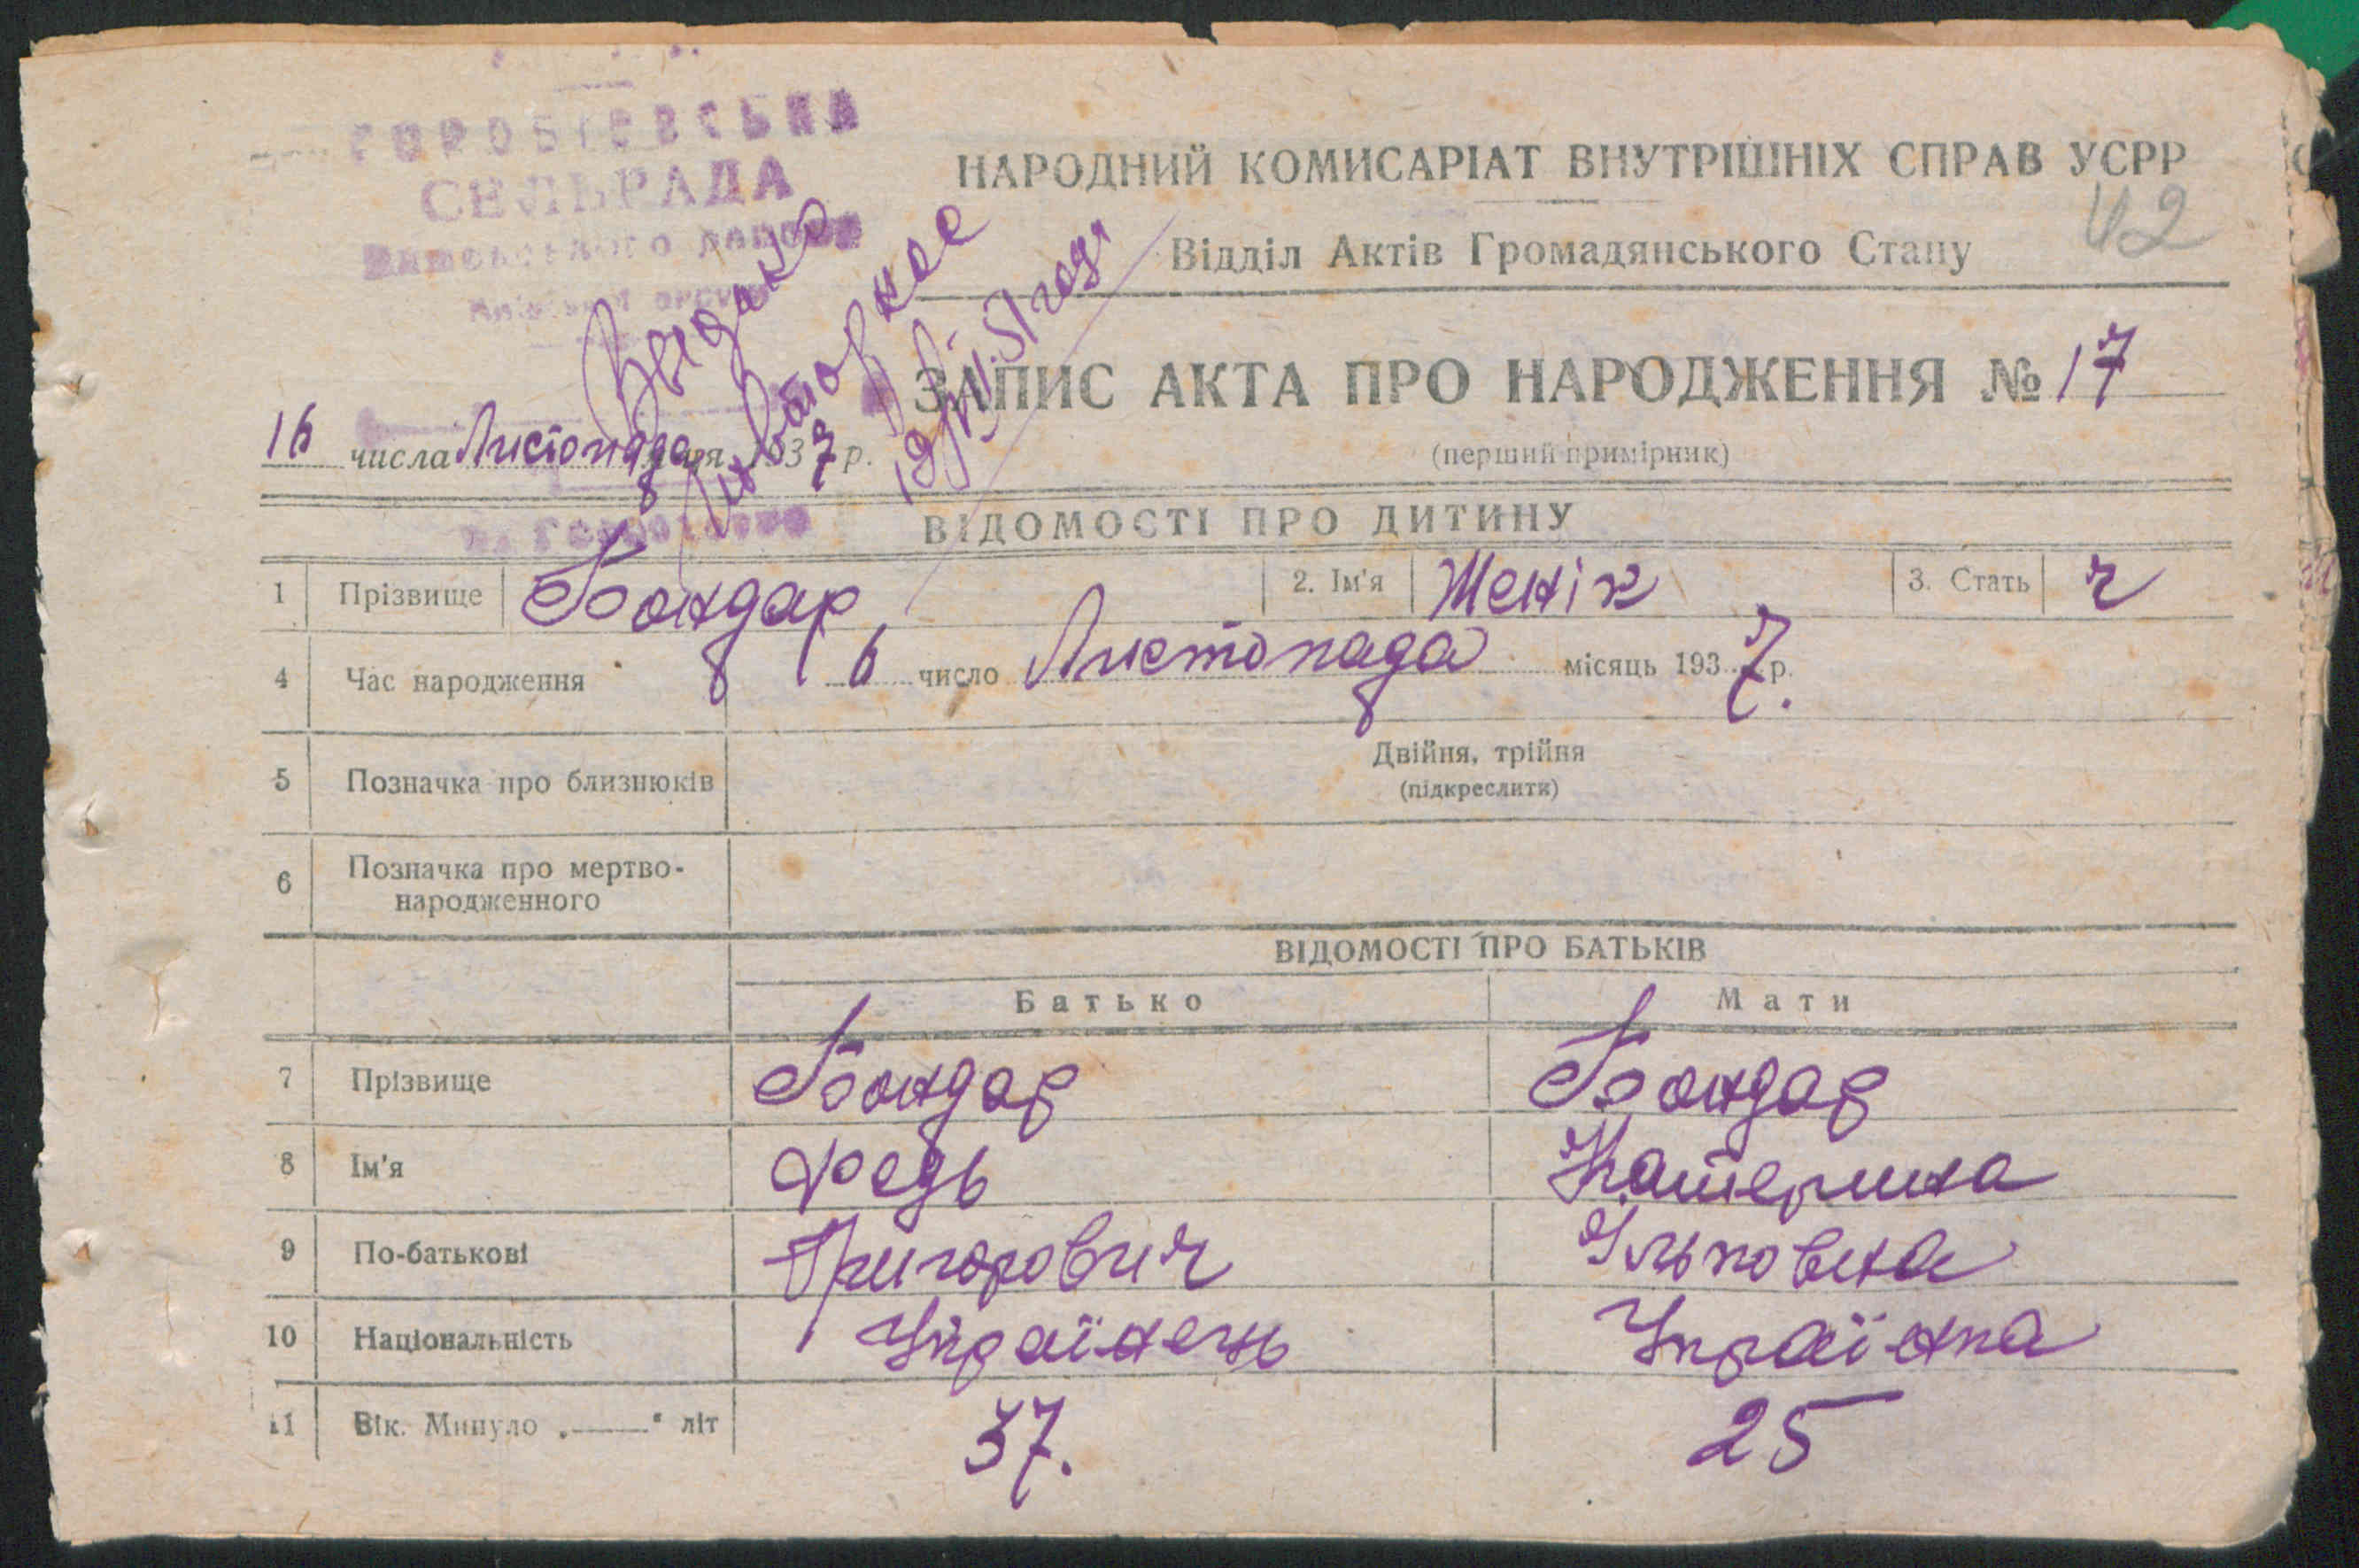 СЕЛЬРАДА
НАРОДНИЙ КОМИСАРІАТ ВНУТРІШНІХ СПРАВ УСРР
42
Відділ Актів Громадянського Стану
Выдано
повторное
19/VI.51 году
ЗАПИС АКТА ПРО НАРОДЖЕННЯ № 17
(перший примірник)
16 числа Листопада 1937 р.
ВІДОМОСТІ ПРО ДИТИНУ
1 Прізвище Бондар 2. Ім'я Женік 3. Стать ч
4 Час народження 6 число Листопада місяць 1937 р.
5 Позначка про близнюків Двійня, трійня
(підкреслити)
6 Позначка про мертво-
народженного
ВІДОМОСТІ ПРО БАТЬКІВ
Батько Мати
7 Прізвище Бондар Бондар
8 Ім'я Федь Катерина
9 По-батькові Григорович Ільковна
10 Національність Українець Українка
11 Вік. Минуло „——“ літ 37. 25